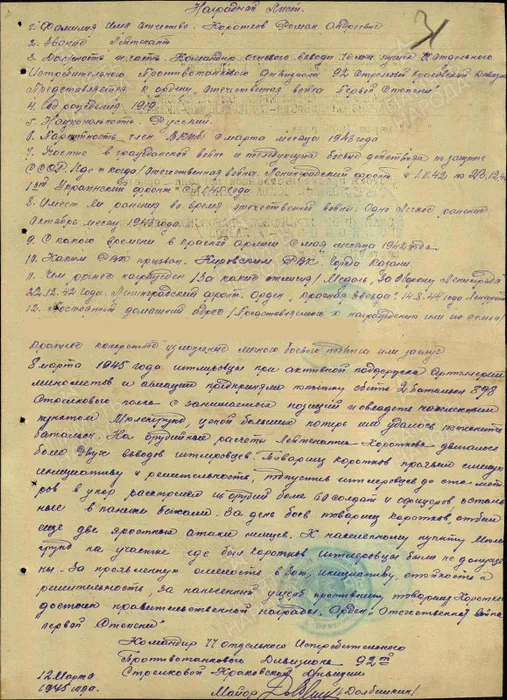 Наградной Лист.
1. Фамилия Имя Отчество. Коротков Роман Андреевич
2. Звание Лейтенант
3. Должность, часть. Командир огневого взвода 76мм пушек 77 Отдельного
Истребительного Противотанкового дивизиона 92 Стрелковой Краковской дивизии
Представляется к ордену "Отечественная война Первой Степени"
4. Год рождения 1919
5. Национальность Русский
6. Партийность член ВКПб с марта месяца 1943 года
7. Участие в гражданской войне и последующих боевых действиях по защите
СССР. Где и когда? Отечественная война. Ленинградский фронт с
1ый Украинский фронт
8. Имеет ли ранения во время отечественной войны. Одно легкое ранение
Октябрь месяц 1943 года.
9. С какого времени в Красной армии С мая месяца 1942 года
10. Каким РВК призван. Кировским РВК города Казани.
11. Чем ранее награжден /За какие отличия/ Медаль "За Оборону Ленинграда"
22.12.42 года. Ленинградский фронт. Орден "Красная Звезда" 14.8.44 года
12. Постоянный домашний адрес /Представляемого к награждению или его семьи/
Краткое конкретное изложение личного боевого подвига или заслуг
8 марта 1945 года гитлеровцы при активной поддержке Артиллерии
минометов и авиации предприняли попытку сбить 2 батальон
Стрелкового полка с занимаемых позиций и овладеть населенным
пунктом ценой больших потерь им удалось потеснить
батальон. На орудийные расчеты Лейтенанта Короткова двигалось
более двух взводов гитлеровцев. Товарищ Коротков проявил смелую
инициативу и решительность, подпустил гитлеровцев до ста мет-
ров в упор расстрелял из орудий более 60 солдат и офицеров, осталь-
ные в панике бежали. За день боев товарищ Коротков, отбил
еще две яростных атаки немцев. К населенному пункту
на участке где был Коротков гитлеровцы были не допуще-
ны. За проявленную смелость в бою, инициативу, стойкость и
решительность, за нанесенный ущерб противнику, товарищ Коротков
достоин правительственной награды. Орден "Отечественная Война
первой Степени"
Командир 77 отдельного Истребительного
Противотанкового Дивизиона 92ой
Стрелковой Краковской Дивизии
12 Марта
1945 года.
Майор